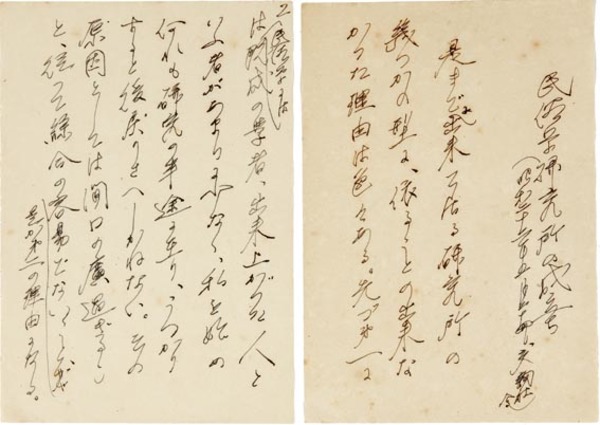 民俗学研究所の成立
是までに出来て居る研究所の
幾つかの型に、依ることの出来な
かつた理由は色々ある。先づ第一に
民俗学には
は既成の学者、出来上がつた人と
いふ者があまりに少なく、私を始め
何れも研究の半途に在り、うつかり
すると後戻りさへしかねない。その
原因としては間口の広過ぎること
と、従つて綜合の容易でないことが
是が第一の理由になる。